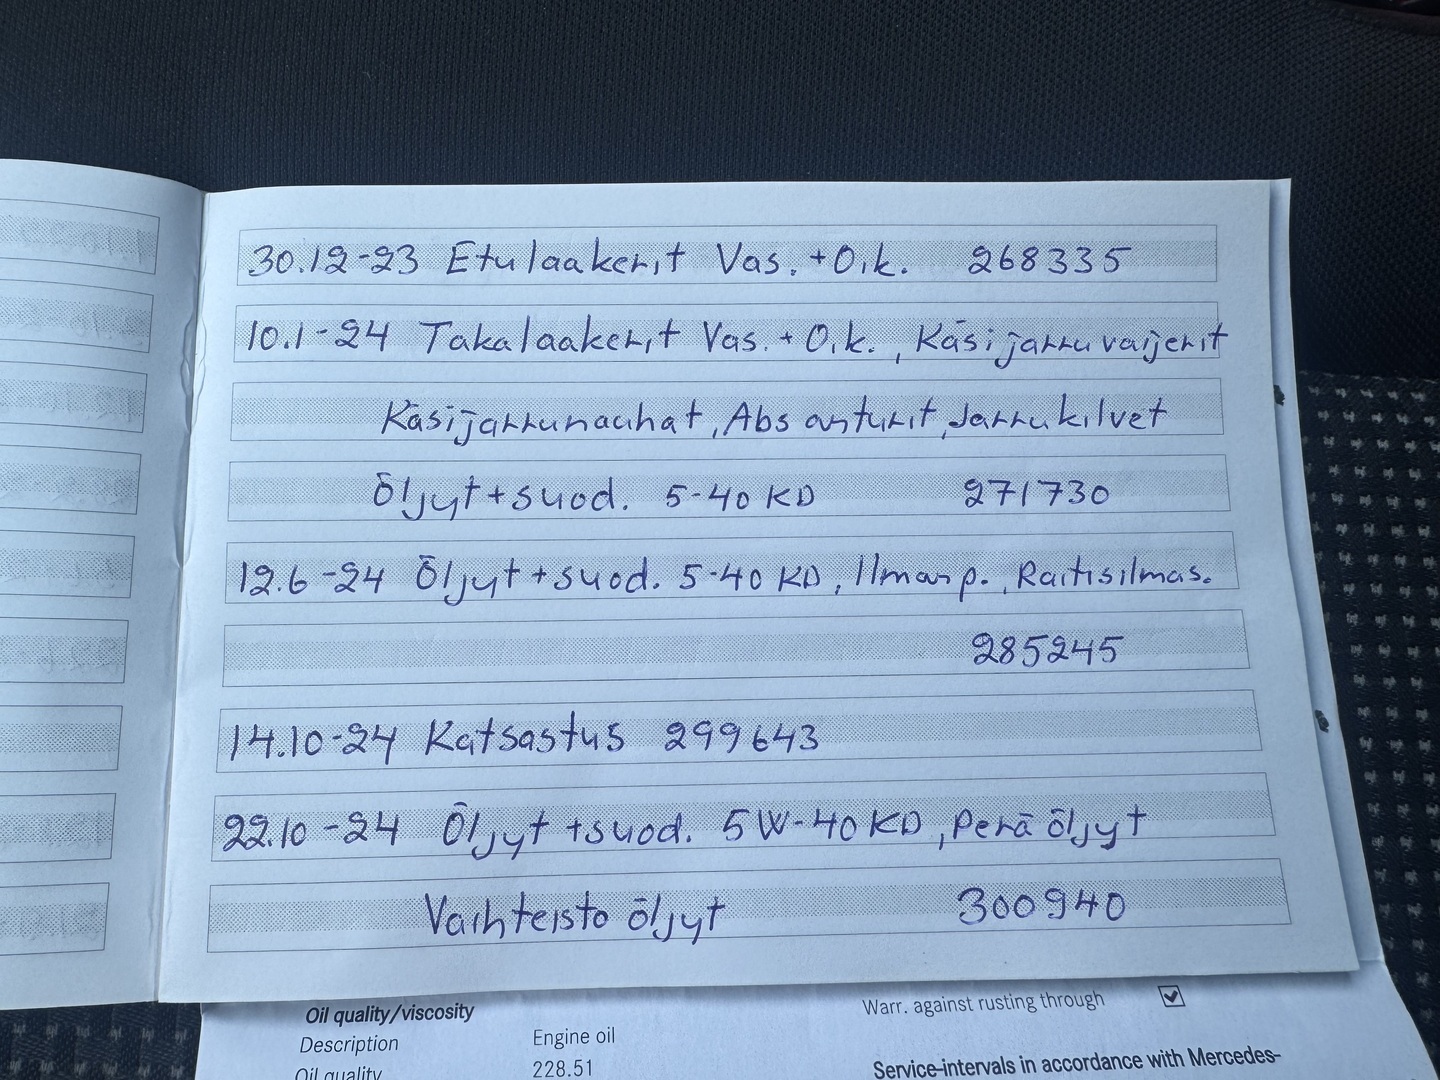 30.12-23 Etulaakerit Vas. + Oik. 268335
10.1-24 Takalaakerit Vas. + Oik., Käsijarruvaijerit
Käsijarrunauhat, Abs anturit, Jarrukilvet
Öljyt + suod. 5-40 KD 271730
12.6-24 Öljyt + suod. 5-40 KD, Ilmanp., Raitisilmas.
285245
14.10-24 Katsastus 299643
22.10-24 Öljyt + suod. 5W-40 KD, Perä öljyt
Vaihteisto öljyt 300940
Oil quality/viscosity
Warr. against rusting through
Description Engine oil
Oil quality 228.51
Service-intervals in accordance with Mercedes-